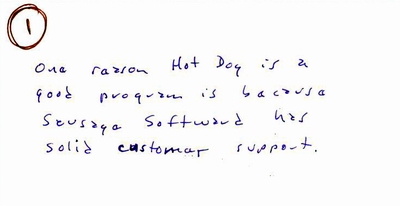 1
One reason Hot Dog is a
good program is because
Sausage Software has
solid customer support.